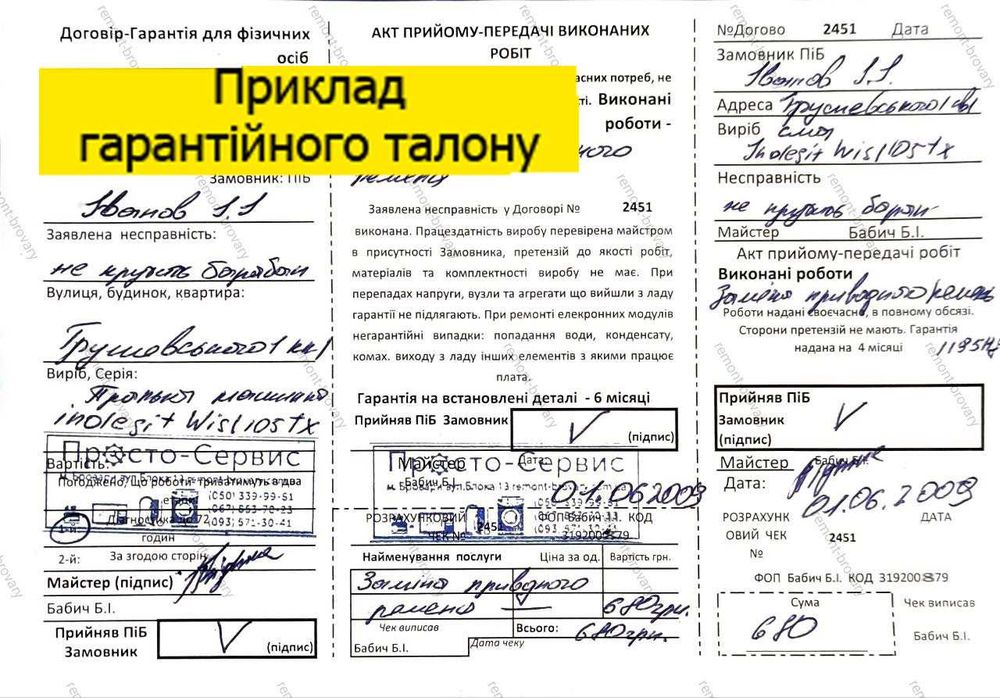 Договір-Гарантія для фізичних
осіб
Приклад
гарантійного талону
Замовник: ПІБ
Іванов І.І
Заявлена несправність:
не крутить барабан
Вулиця, будинок, квартира:
Грушевського 1 кв 1
Виріб, Серія:
Пральна машина
indesit Wisl 105 TX
Просто-Сервис
Вартість:
Погоджено, що роботи триватимуть в два
(050) 339-99-51
(067) 563-70-23
(093) 571-30-41
Діагностика до 72
годин
2-й: За згодою сторін
Майстер (підпис)
Бабич Б.І.
Прийняв ПіБ
Замовник
(підпис)
АКТ ПРИЙОМУ-ПЕРЕДАЧІ ВИКОНАНИХ
РОБІТ
асних потреб, не
ті. Виконані
роботи -
ного
ременя
Заявлена несправність у Договорі № 2451
виконана. Працездатність виробу перевірена майстром
в присутності Замовника, претензій до якості робіт,
матеріалів та комплектності виробу не має. При
перепадах напруги, вузли та агрегати що вийшли з ладу
гарантії не підлягають. При ремонті елекронних модулів
негарантійні випадки: попадання води, конденсату,
комах. виходу з ладу інших елементів з якими працює
плата.
Гарантія на встановлені деталі - 6 місяці
Прийняв ПіБ Замовник
(підпис)
Майстер Дата:
Просто-Сервис
01.06 2009
РОЗРАХУНКОВИЙ ФОП Бабич Б.І. КОД
ЧЕК № 2451
Найменування послуги Ціна за од. Вартість грн.
Заміна приводного
ременю 680 грн.
Чек виписав Всього: 680 грн.
Бабич Б.І. Дата чеку
№Догово 2451 Дата
Замовник ПіБ
Іванов І.І.
Адреса Грушевського 1 кв 1
Виріб сма
Indesit Wisl 105 TX
Несправність
не крутить барабан
Майстер Бабич Б.І.
Акт прийому-передачі робіт
Виконані роботи
Заміна приводного ремень
Роботи надані своєчасно, в повному обсязі.
Сторони претензій не мають. Гарантія
надана на 4 місяці 1195H7
Прийняв ПіБ
Замовник
(підпис)
Майстер Бабич Б.І.
Дата:
01.06.2009
РОЗРАХУНК ДАТА
ОВИЙ ЧЕК 2451
№
ФОП Бабич Б.І. КОД
Сума Чек виписав
680
Бабич Б.І.
remont-brovary